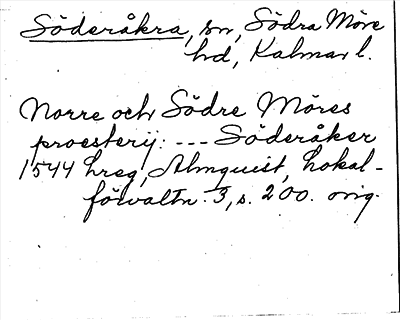 Söderåkra, sn, Södra Möre
hd, Kalmar l.
Norre och Södre Möres
proesterij: --- Söderåker
1544 hreg, Almquist, Lokal-
förvaltn. 3, s. 200. orig.